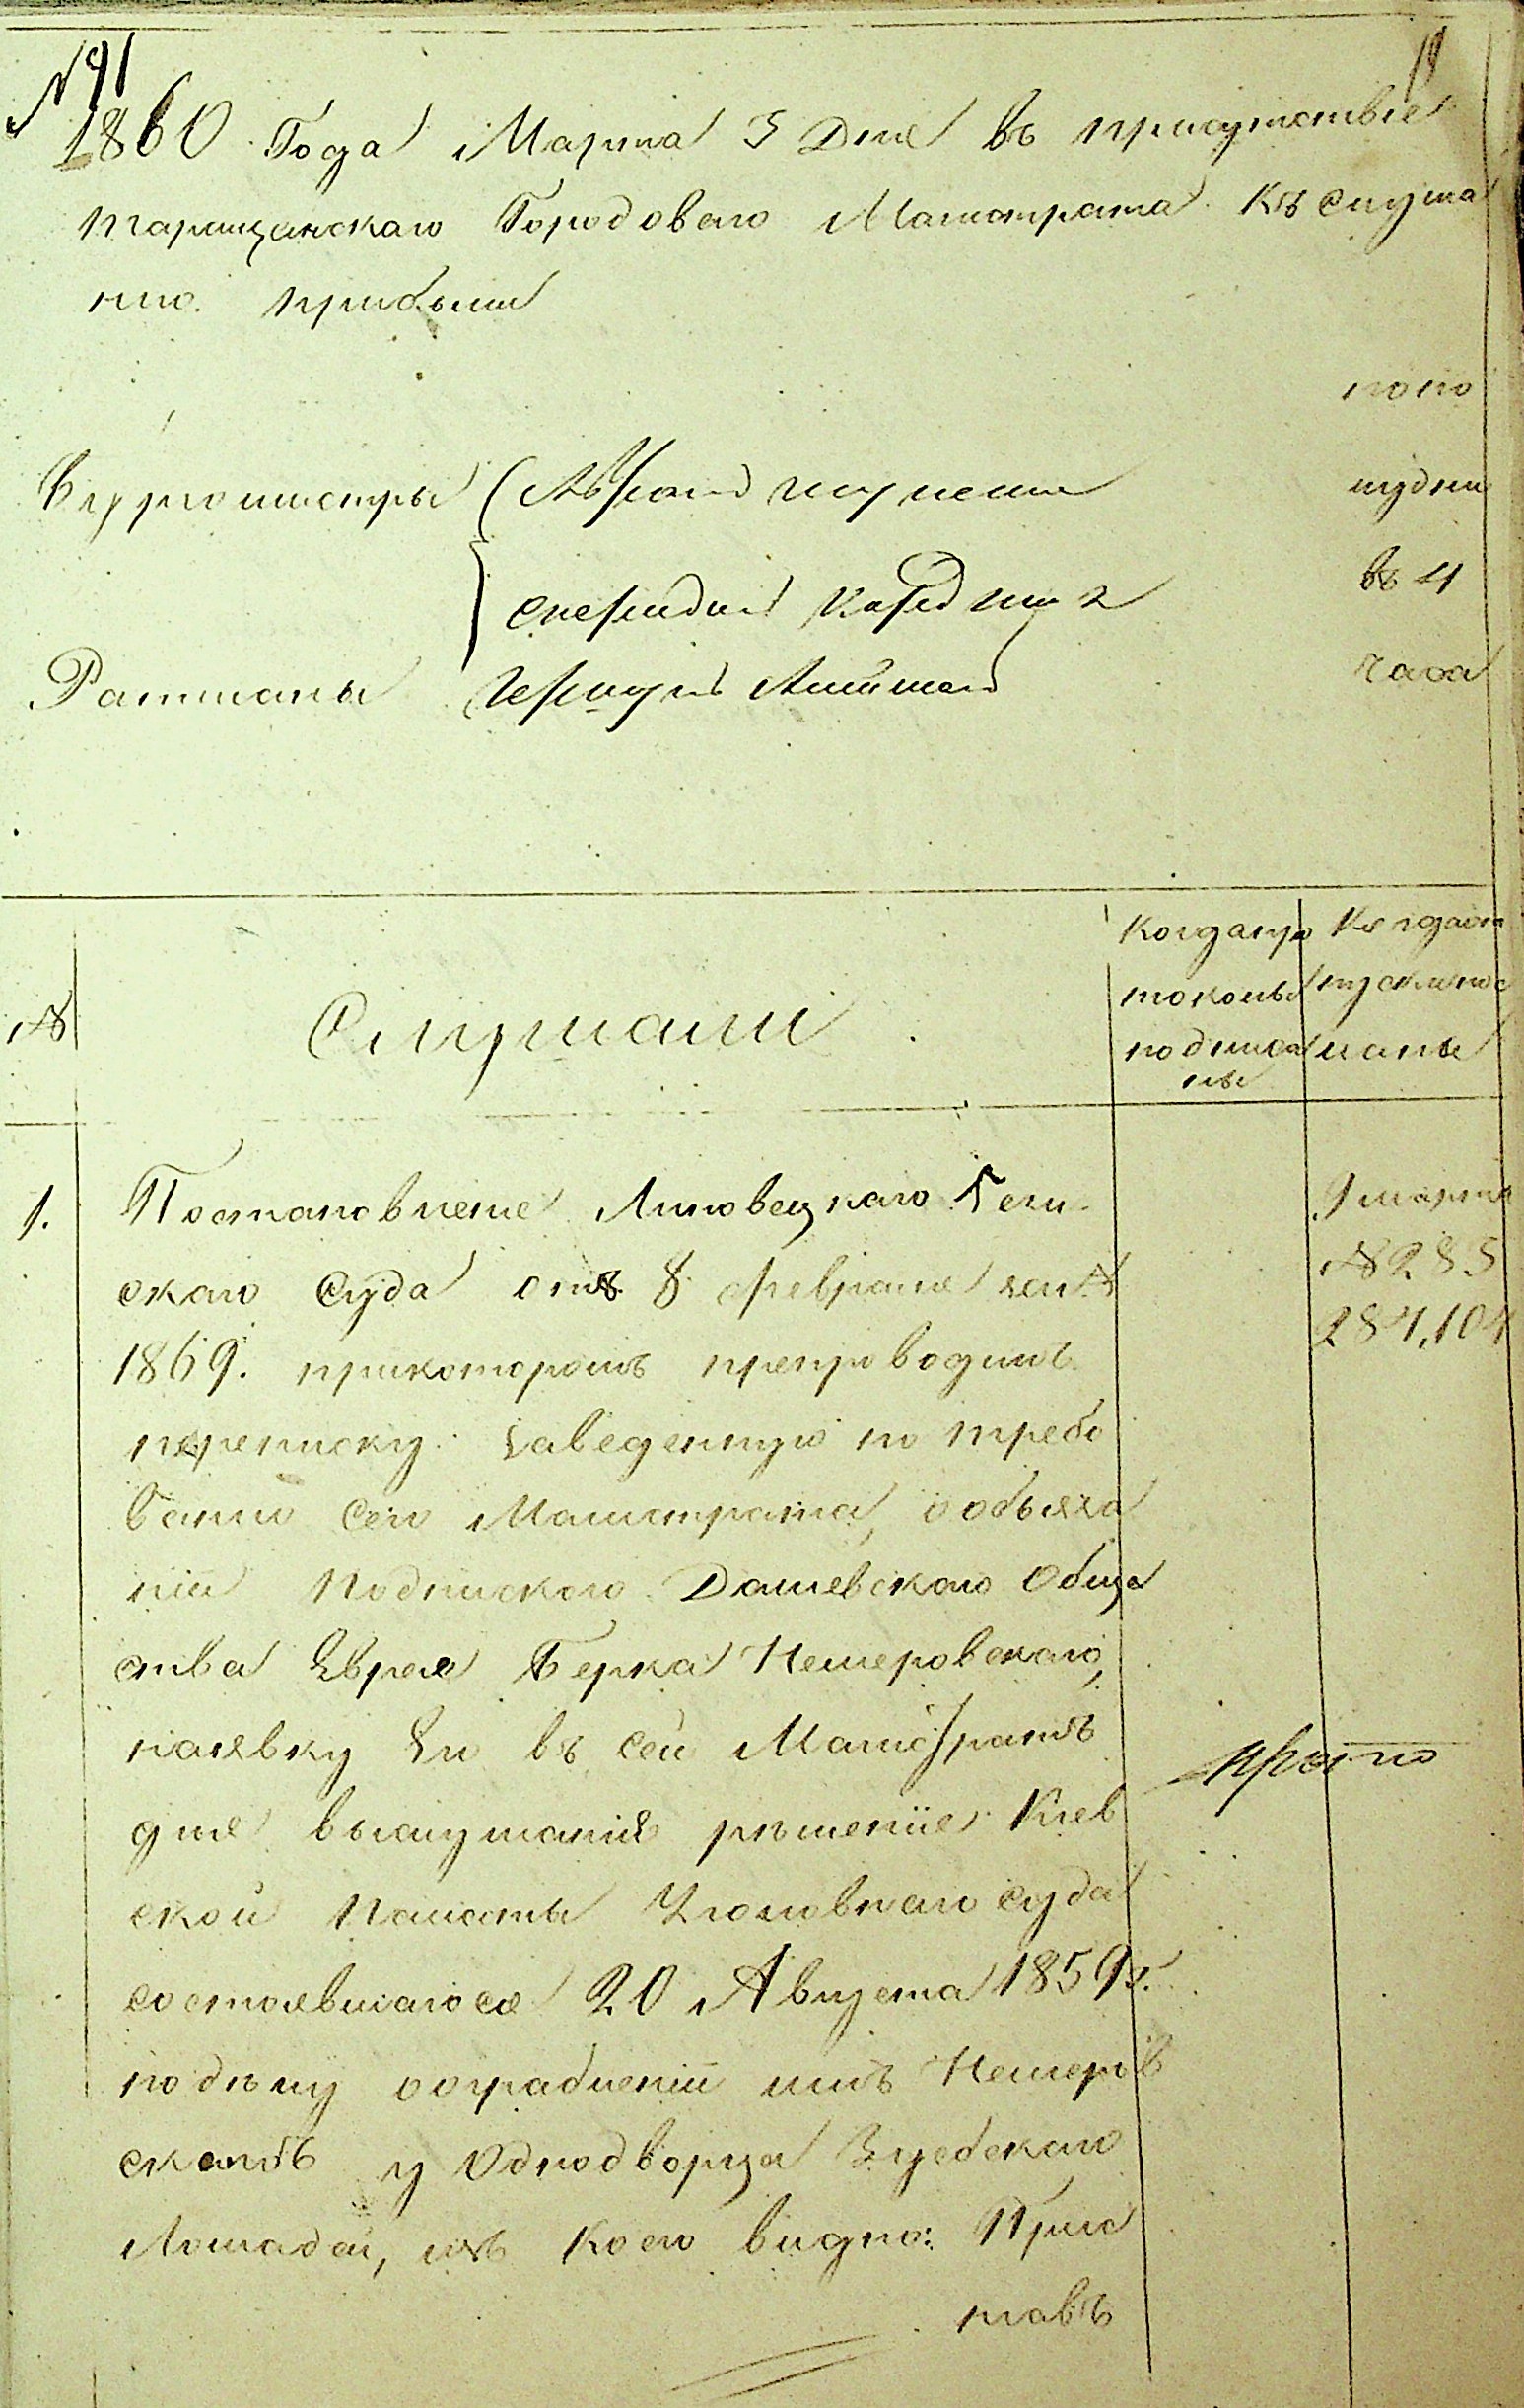 № 91
1860 Года Марта 3 Дня въ присутствіе
Таращанскаго Городоваго Магистрата къ слуша
нию прибыли
попо
Бургомистры
лудни
въ 4
Ратманы
часа
№
Слушали
Когда про
токолы
подписа
ны
Когда от
пуск испол
наны
1.
Постановленіе Липовецкаго Земи
скаго Суда отъ 8 февраля за №
1869. прикоторомъ препроводилъ
переписку заведенную по требо
ванию сего Магистрата, о обяза
ніи подпискою Дашевскаго Обще
ства Еврея Берка Немеровскаго,
наявку Ею въ сей Магистратъ
для выслушанія рѣшеніе Киев
ской Палаты Уголовнаго Суда
состоявшагося 20 Августа 1859 г.
подѣлу оограбленіи имъ Немеров
скимъ у Однодворца Зтсебскаго
Лошадей, изъ коего видно: Прис
тавъ
9 марта
№ 285
284,104